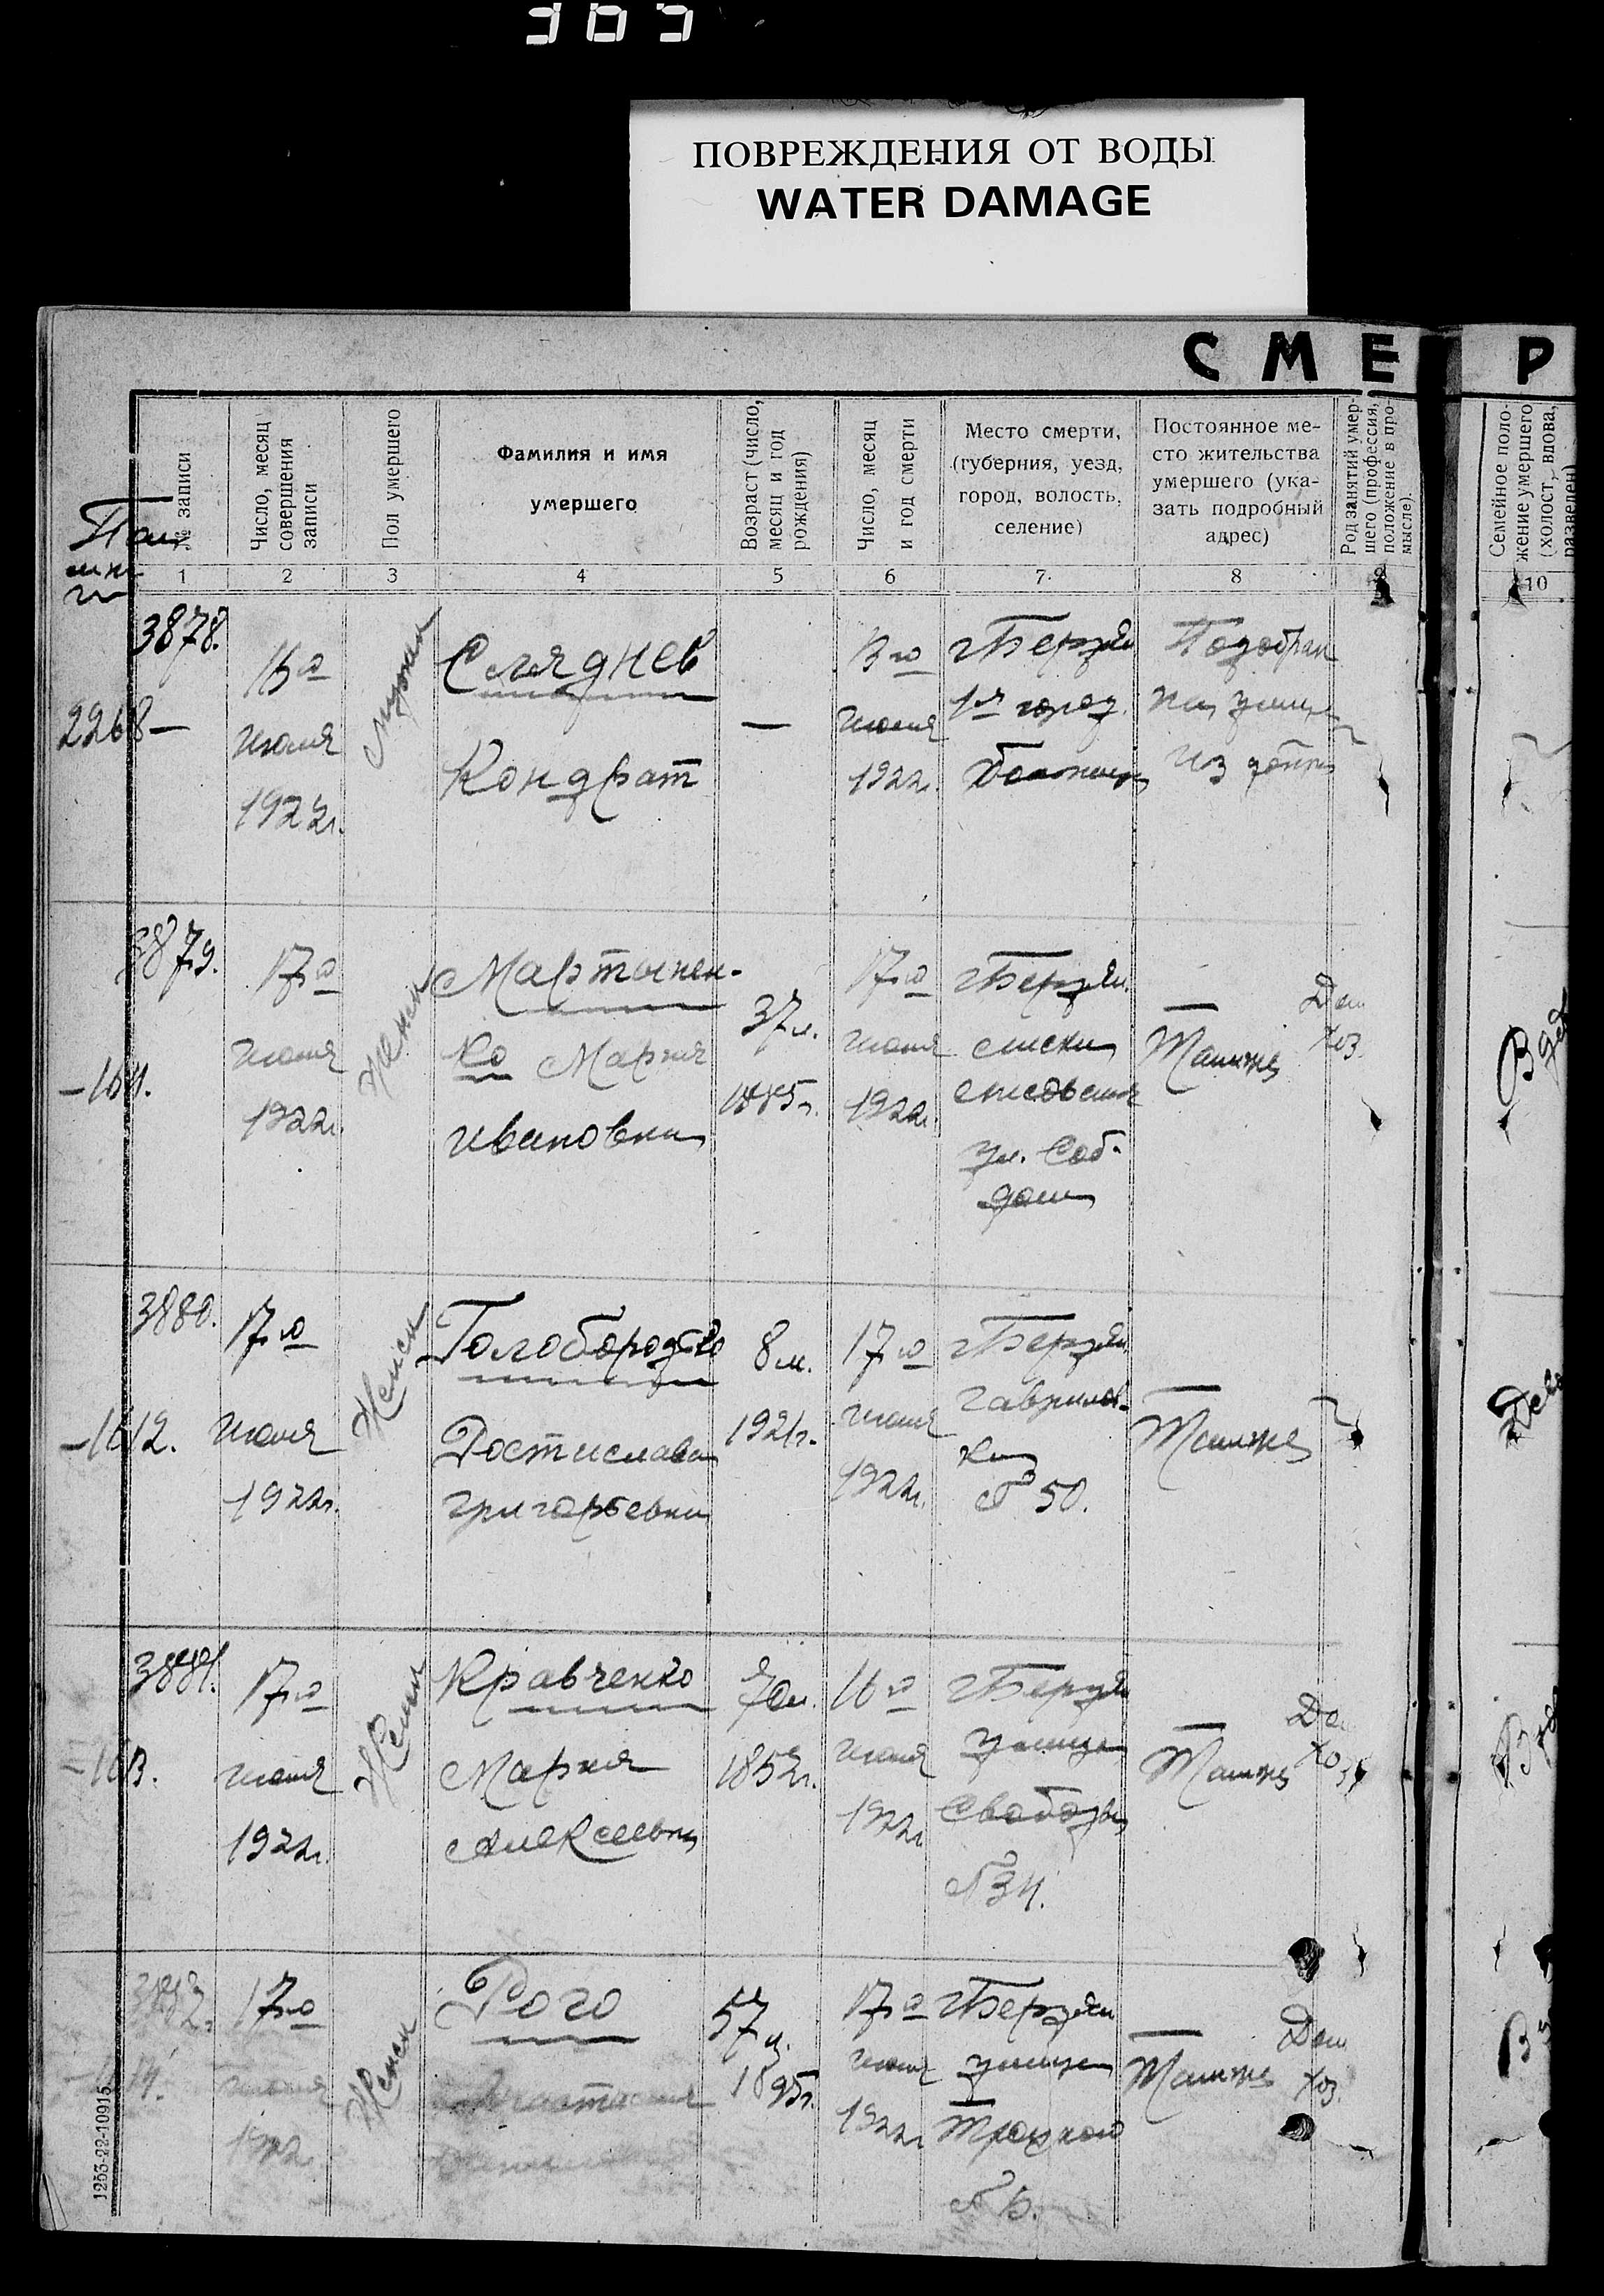 365
ПОВРЕЖДЕНИЯ ОТ ВОДЫ
WATER DAMAGE
СМЕ
Р
№ записи
Число, месяц
совершения
записи
Пол умершего
Фамилия и имя
умершего
Возраст (число,
месяц и год
рождения)
Число, месяц
и год смерти
Место смерти,
(губерния, уезд,
город, волость,
селение)
Постоянное ме-
сто жительства
умершего (ука-
зать подробный
адрес)
Род занятий умер-
шего (профессия,
положение в про-
мысле).
Семейное поло-
жение умершего
(холост, вдова,
разведен)
1
2
3
4
5
6
7.
8
9
10
3878.
2268—
16го
июня
1922г.
мужск
Сляднев
Кондрат
—
13го
июня
1922г.
г Бердян
1я город.
больница
Подобран
на улице
3879.
17го
июня
1922г.
Женск
Мартынен-
ко Мария
Ивановна
37л.
1885г.
17го
июня
1922г.
г Бердян.
ул. Соб.
дом
—
Тамже
Дом
хоз.
3880.
-1612.
17го
июня
1922г.
Женск
Голобородько
Ростислава
Григорьевна
8м.
1921г.
17го
июня
1922г.
г Бердян
Гаврилов-
ка
№ 50.
—
Тамже
3881.
-1613.
17го
июня
1922г.
Женск
Кравченко
Мария
Алексеевна
70л.
1852г.
16го
июня
1922г
г Бердян
улица
Свободы
№ 34.
—
Тамже
Дом
хоз
3882.
17го
июня
1922
Женск
Рого
57л.
17го
июня
1922г
г Бердян
улица
Троцкого
—
Тамже
Дом
хоз.
1253-22-10915.